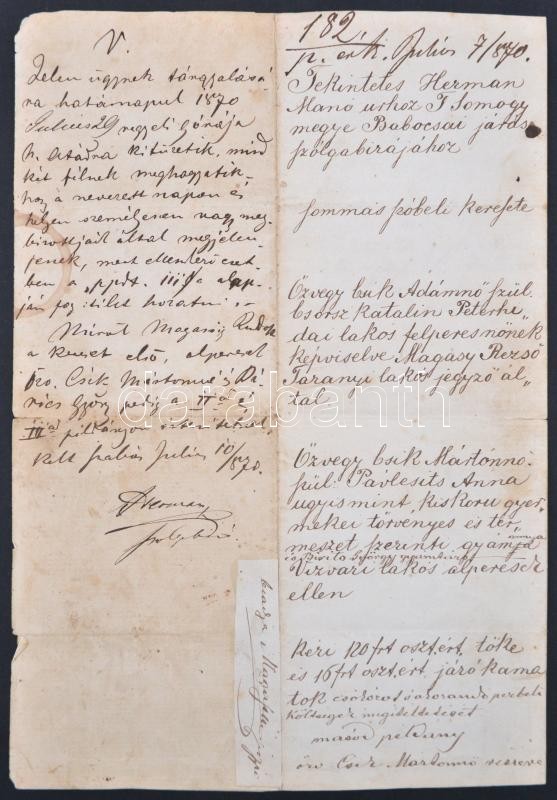 V.
Jelen ügynek tárgyalásá-
ra határnapul 1870
Julius 29 reggeli 9 órája
kitüzetik, mind
két félnek meghagyatik
hogy a nevezett napon és
helyen személyesen vagy meg-
bizottjaik által megjelen-
jenek, mert ellenkező eset-
ben a ppdt. 111 § a alap-
ján fog itélet hozatni.
Miről Magassy Rudolf
a kereset első, alperesek
özv. Csik Mártonné és
György pedig a II od és
III ad példányon értesittetnek.
Kelt Julius 10/870.
Herman
szolgabiró
182.
p. Julius 7/870.
Tekintetes Herman
Manó urhoz T Somogy
megye Babocsai járás
szolgabirájához
Sommás szóbeli keresete
Özvegy Csik Ádámnő szül.
Csórsz Katalin Péterhi
dai lakós felperesnőnek
képviselve Magásy Rezső
Taranyi lakós jegyző ál-
tal
Özvegy Csik Mártónnő
szül: Pavlesits Anna
ugyis mint kiskoru gyer
mekei törvényes és ter
mészet szerinti gyámja
és György
Vizvári lakós alperesek
ellen
kéri 120 frt osztért tőke
és 16 frt osztért járó kama
tok perbeli
költségek megitéltetését
másod példány
özv Csik Martonné részére
kiadja Magassy
darabanth